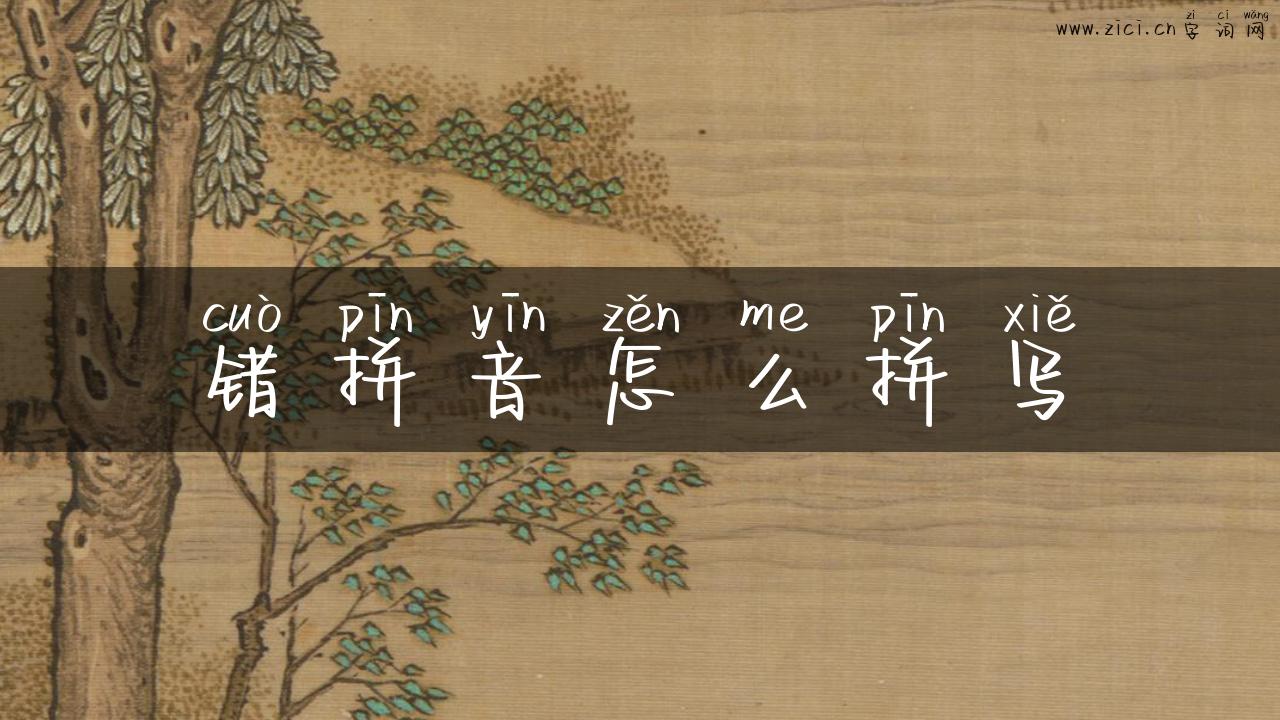 zì cí wǎng
www.zici.cn 字 词 网
cuò pīn yīn zěn me pīn xiě
错 拼 音 怎 么 拼 写